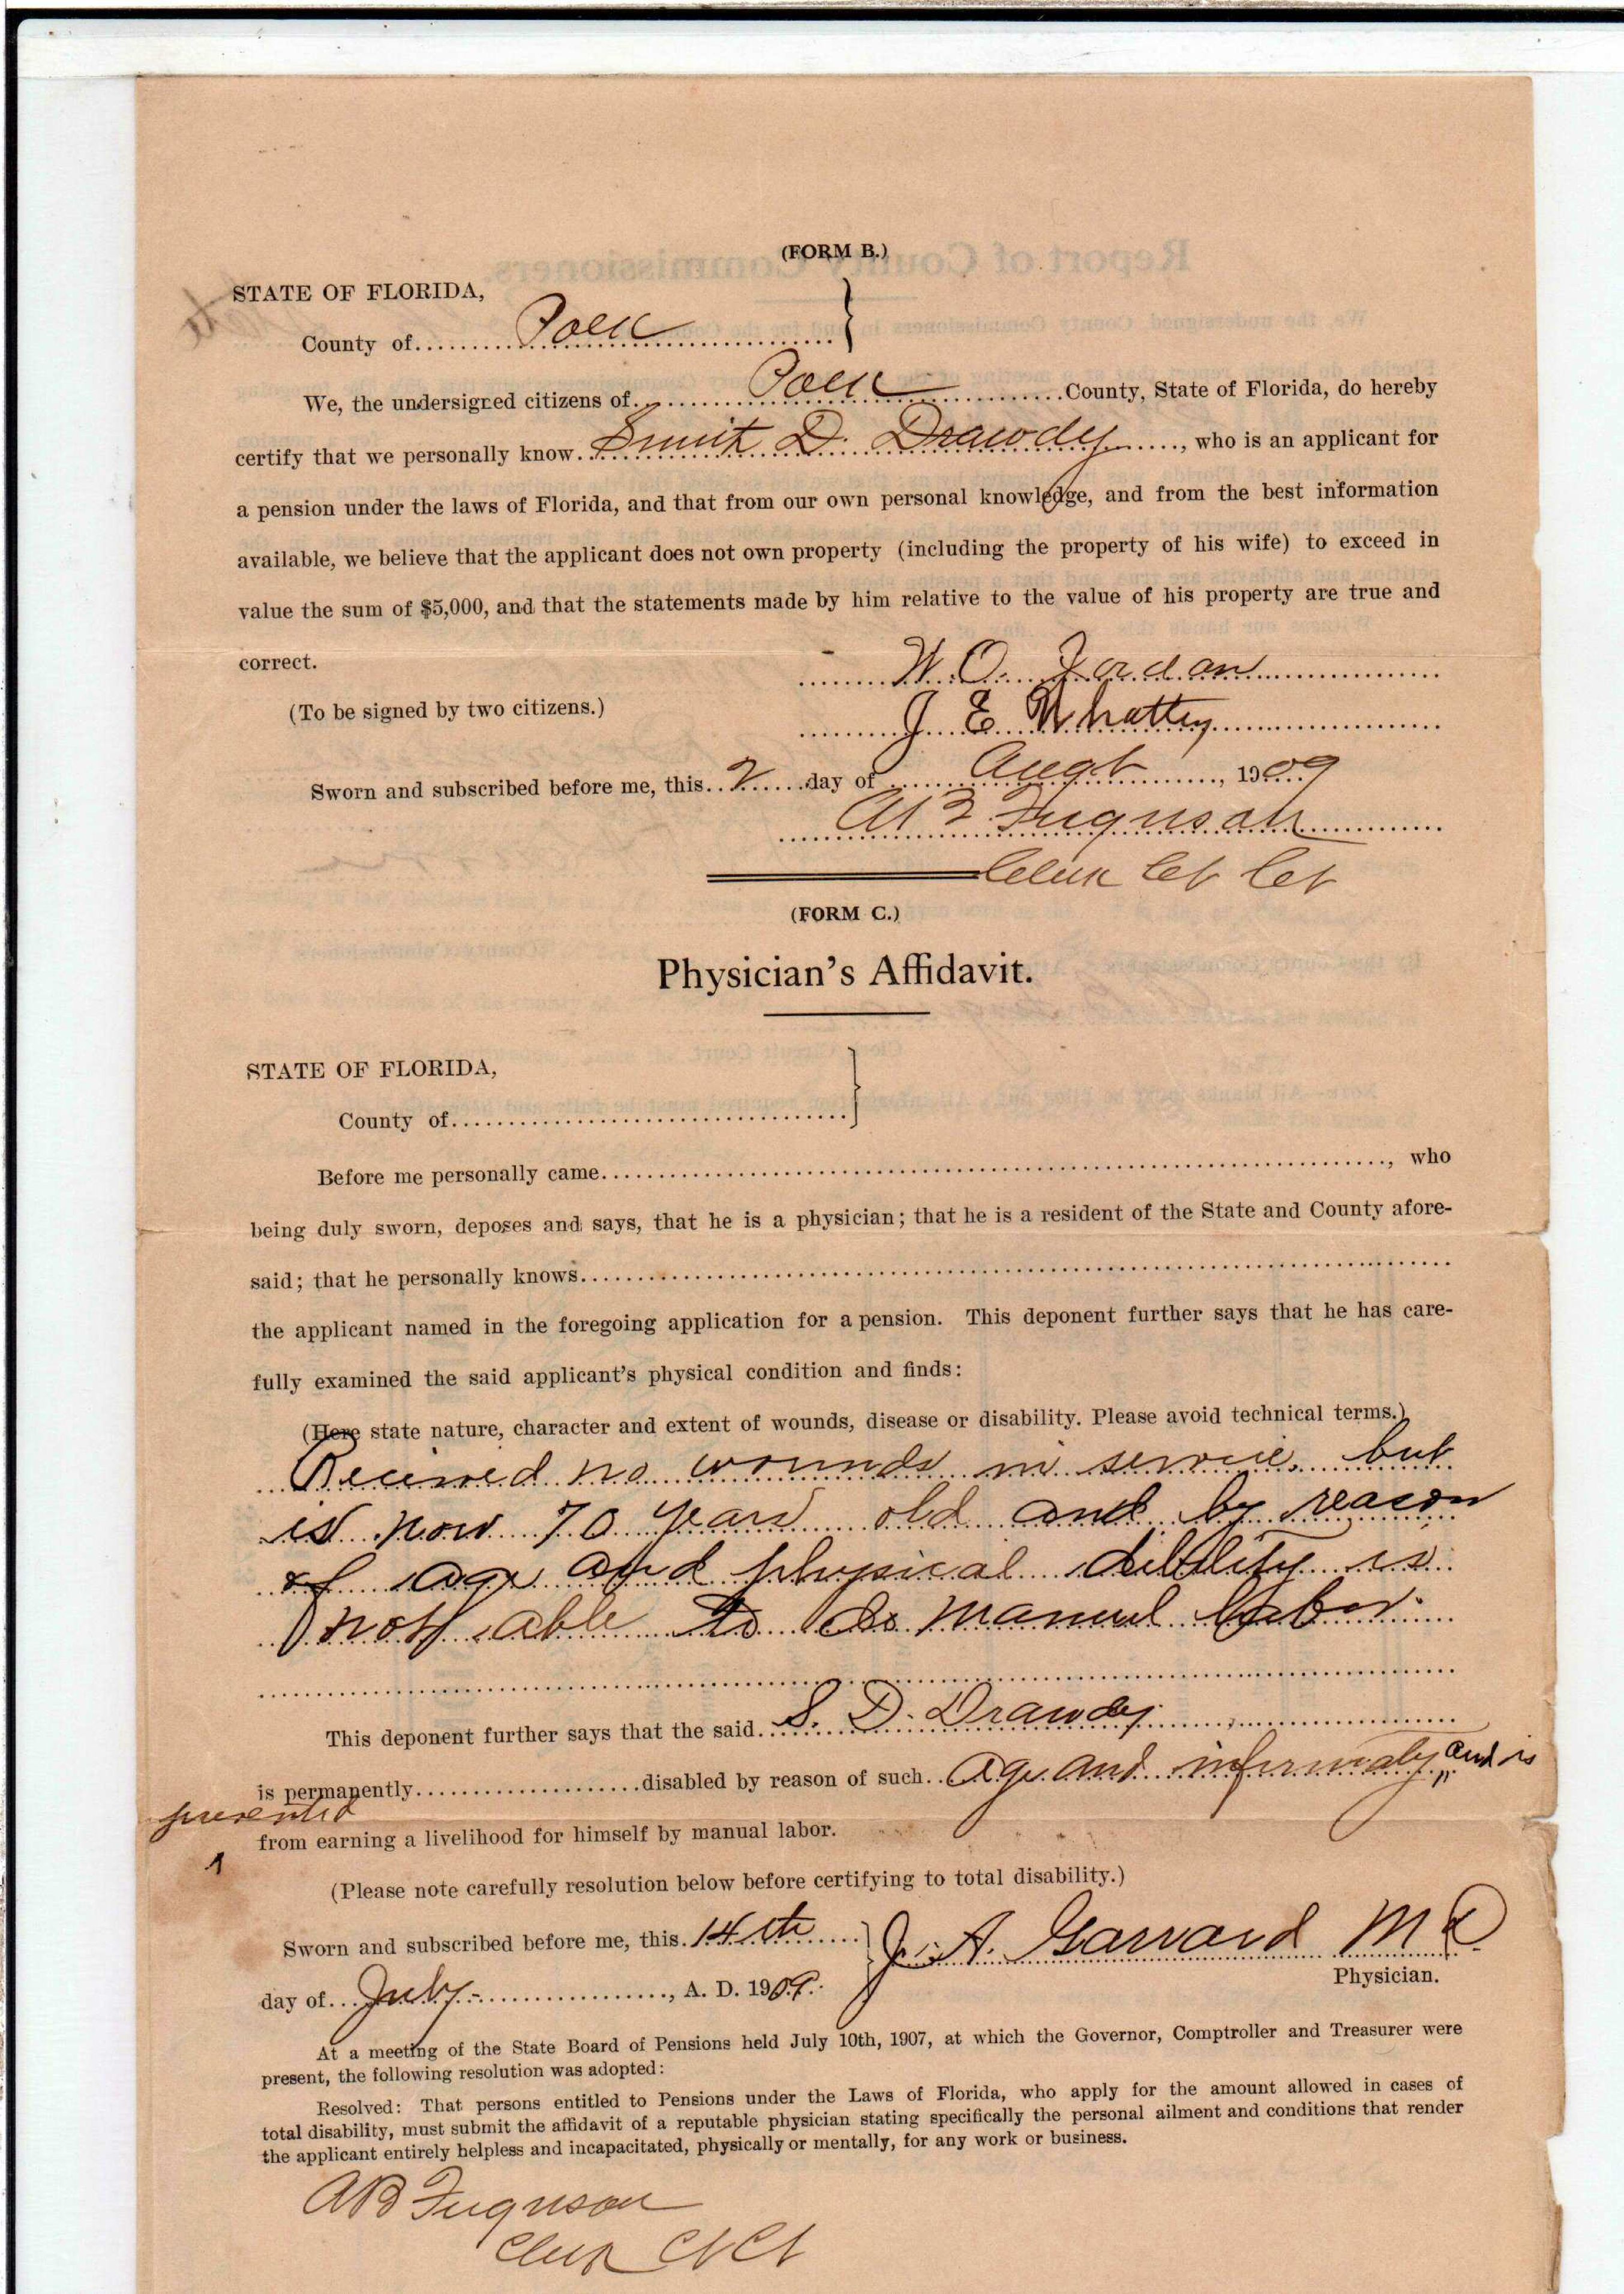 (FORM B.)
STATE OF FLORIDA,
County of Polk
We, the undersigned citizens of Polk County, State of Florida, do hereby
certify that we personally know Smit D. Drawdy, who is an applicant for
a pension under the laws of Florida, and that from our own personal knowledge, and from the best information
available, we believe that the applicant does not own property (including the property of his wife) to exceed in
value the sum of $5,000, and that the statements made by him relative to the value of his property are true and
correct.
W. O. Jordan
(To be signed by two citizens.)
J E Whatley
Sworn and subscribed before me, this 2 day of Augt, 1909
A B Furguson
Clerk Ct Ct
(FORM C.)
Physician's Affidavit.
STATE OF FLORIDA,
County of
Before me personally came, who
being duly sworn, deposes and says, that he is a physician; that he is a resident of the State and County afore-
said; that he personally knows
the applicant named in the foregoing application for a pension. This deponent further says that he has care-
fully examined the said applicant's physical condition and finds:
(Here state nature, character and extent of wounds, disease or disability. Please avoid technical terms.)
Received no wounds in service, but
is now 70 years old and by reason
of age and physical debility is
not able to do manual labor
This deponent further says that the said S. D. Drawdy
is permanently disabled by reason of such age and infirmity, and is
prevented
from earning a livelihood for himself by manual labor.
(Please note carefully resolution below before certifying to total disability.)
Sworn and subscribed before me, this 14th
J. A. Garrard M D
Physician.
day of July, A. D. 1909.
At a meeting of the State Board of Pensions held July 10th, 1907, at which the Governor, Comptroller and Treasurer were
present, the following resolution was adopted:
Resolved: That persons entitled to Pensions under the Laws of Florida, who apply for the amount allowed in cases of
total disability, must submit the affidavit of a reputable physician stating specifically the personal ailment and conditions that render
the applicant entirely helpless and incapacitated, physically or mentally, for any work or business.
A B Furguson
Clerk Ct Ct